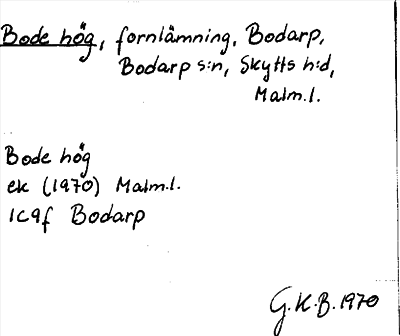 Bode hög, fornlämning, Bodarp,
Bodarp s:n, Skytts h:d,
Malm.l.
Bode hög
ek (1970) Malm.l.
1C9f Bodarp
G.K.B. 1970